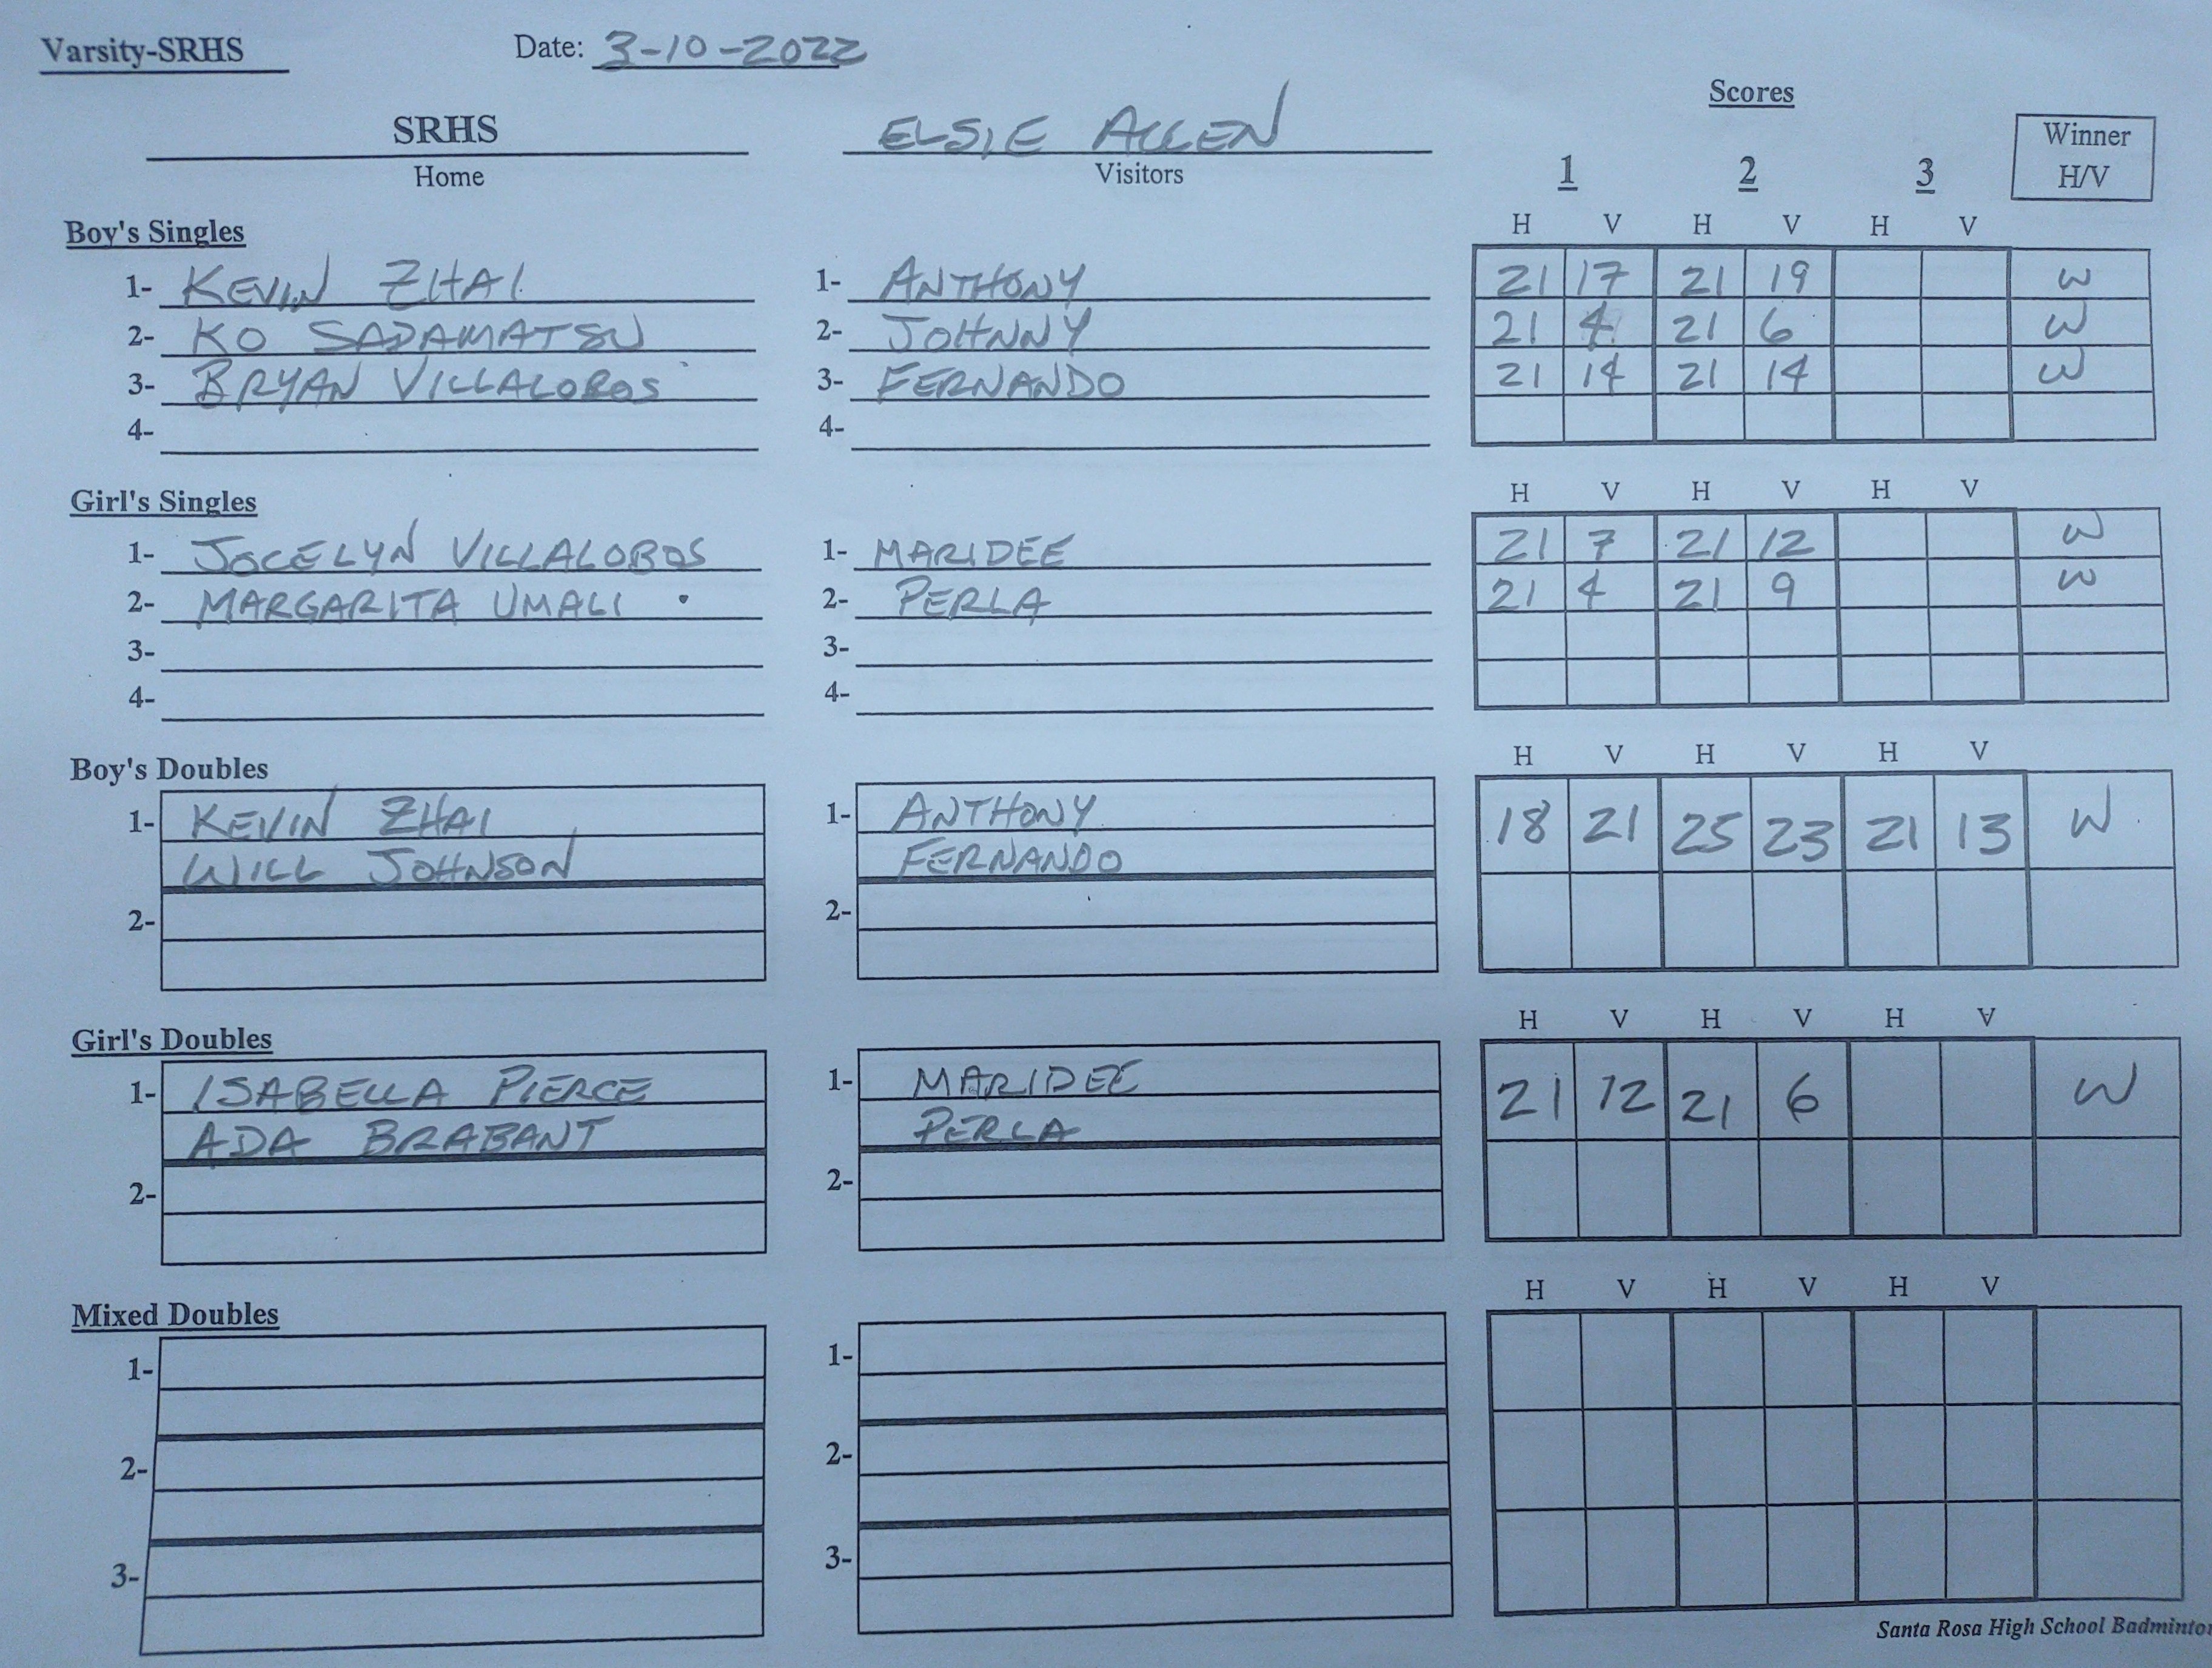 Varsity-SRHS Date: 3-10-2022
Scores
SRHS ELSIE ALLEN
Home Visitors
1 2 3 Winner H/V
Boy's Singles H V H V H V
1- KEVIN ZHAI 1- ANTHONY 21 17 21 19 W
2- KO SADAMATSU 2- JOHNNY 21 4 21 6 W
3- BRYAN VILLALOBOS 3- FERNANDO 21 14 21 14 W
4- 4-
Girl's Singles H V H V H V
1- JOCELYN VILLALOBOS 1- MARIDEE 21 7 21 12 W
2- MARGARITA UMALI 2- PERLA 21 4 21 9 W
3- 3-
4- 4-
Boy's Doubles H V H V H V
1- KEVIN ZHAI 1- ANTHONY 18 21 25 23 21 13 W
WILL JOHNSON FERNANDO
2- 2-
Girl's Doubles H V H V H V
1- ISABELLA PIERCE 1- MARIDEE 21 12 21 6 W
ADA BRABANT PERLA
2- 2-
Mixed Doubles H V H V H V
1- 1-
2- 2-
3- 3-
Santa Rosa High School Badminton